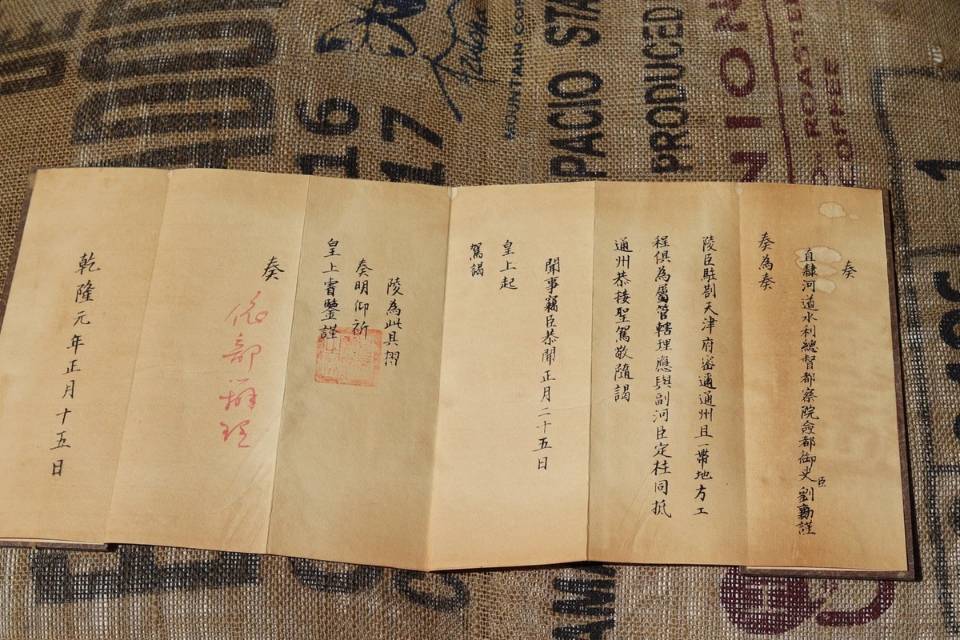 奏
直隸河道水利總督都察院僉都御史臣劉勷謹
奏為奏
陵臣駐劄天津府密邇通州且一帶地方工
程俱為屬管轄理應與副河臣定柱同抵
通州恭接聖駕敬隨謁
聞事竊臣恭聞正月二十五日
皇上起
駕謁
陵為此具摺
奏明仰祈
皇上睿鑒謹
奏
依部辦理
乾隆元年正月十五日
16
17
MOUNTAIN COF
PACIO STA
PRODUCED
NION
ROASTER
COFFEE